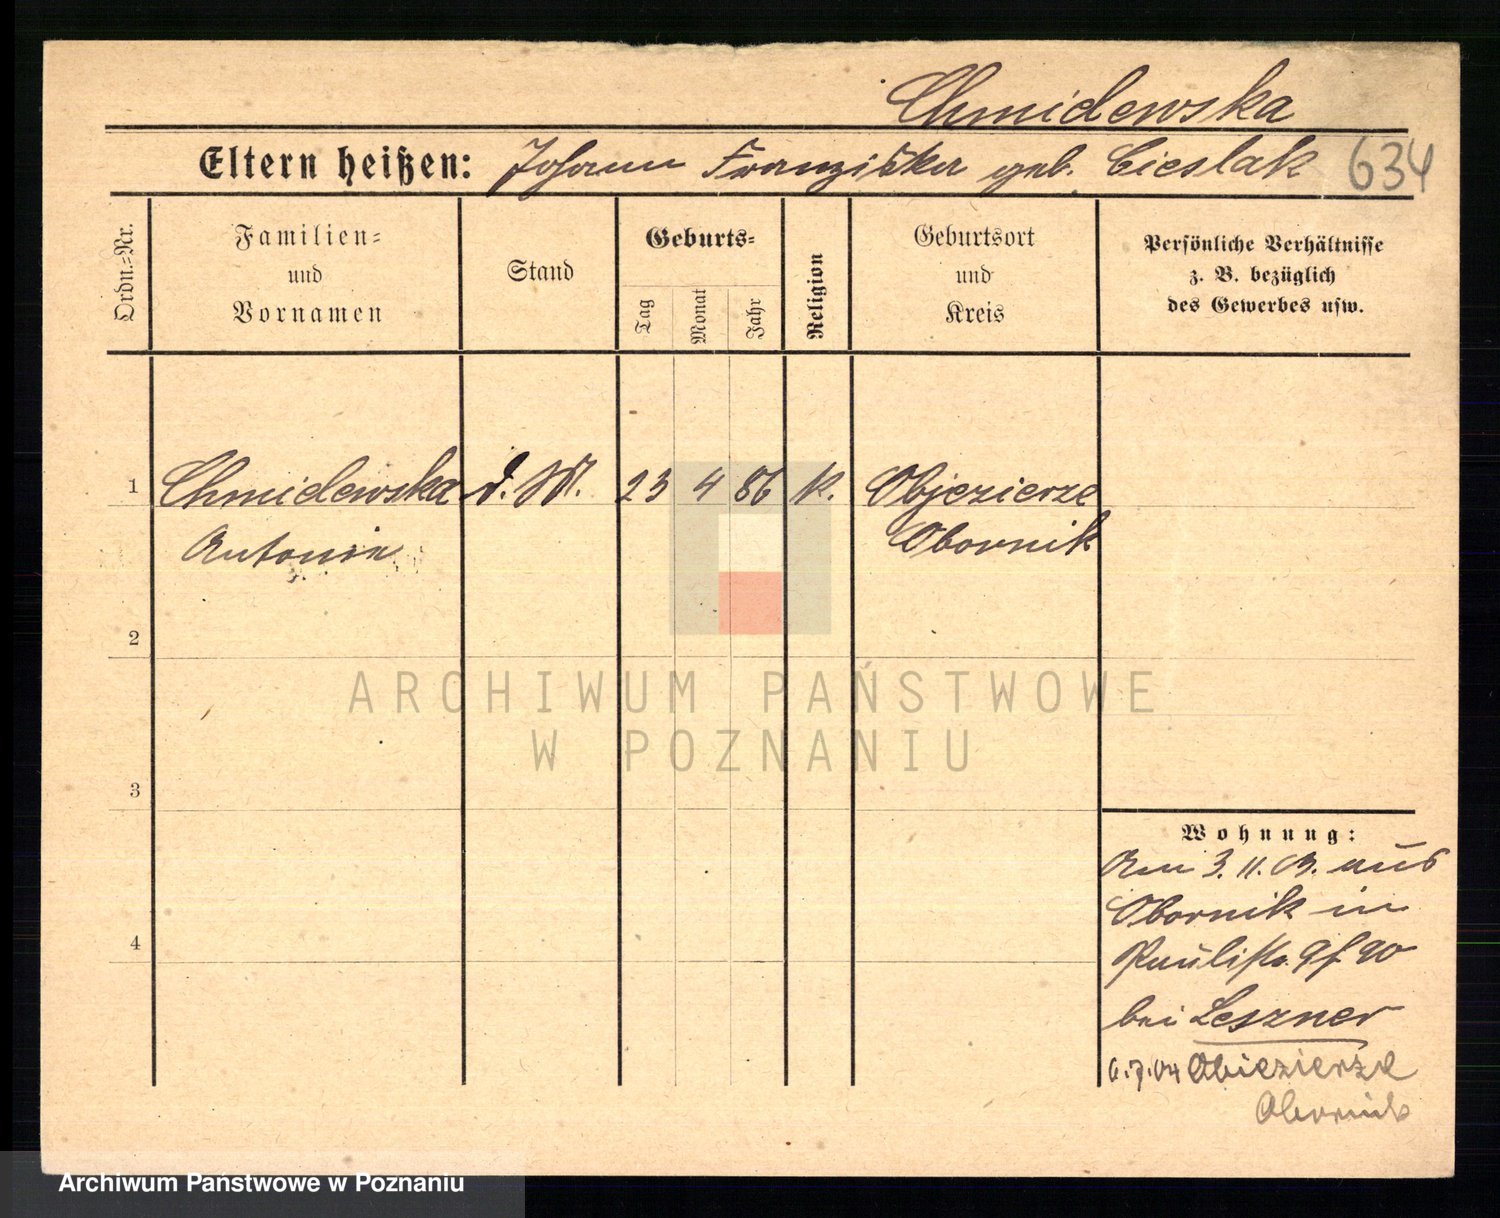 Chmielewska
Eltern heißen: Johann Franziska geb. Cieslak 634
Ordn.=Nr.
Familien=
und
Vornamen
Stand
Geburts=
Tag
Monat
Jahr
Religion
Geburtsort
und
Kreis
Persönliche Verhältnisse
z. B. bezüglich
des Gewerbes usw.
1 Chmielewska d. M. 23 4 86 k. Objezierze
Antonie Obornik
2
3
4
Wohnung:
Am 3. 11. 03. aus
Obornik in
Paulistr. 9
bei Leszner
6.7.04 Obiezierze
Obornik
ARCHIWUM PAŃSTWOWE
W POZNANIU
Archiwum Państwowe w Poznaniu